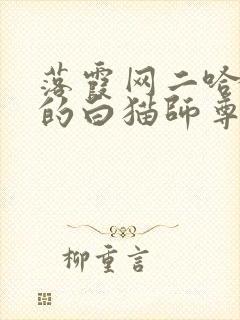 落霞网二哈
的白猫師尊
柳重言